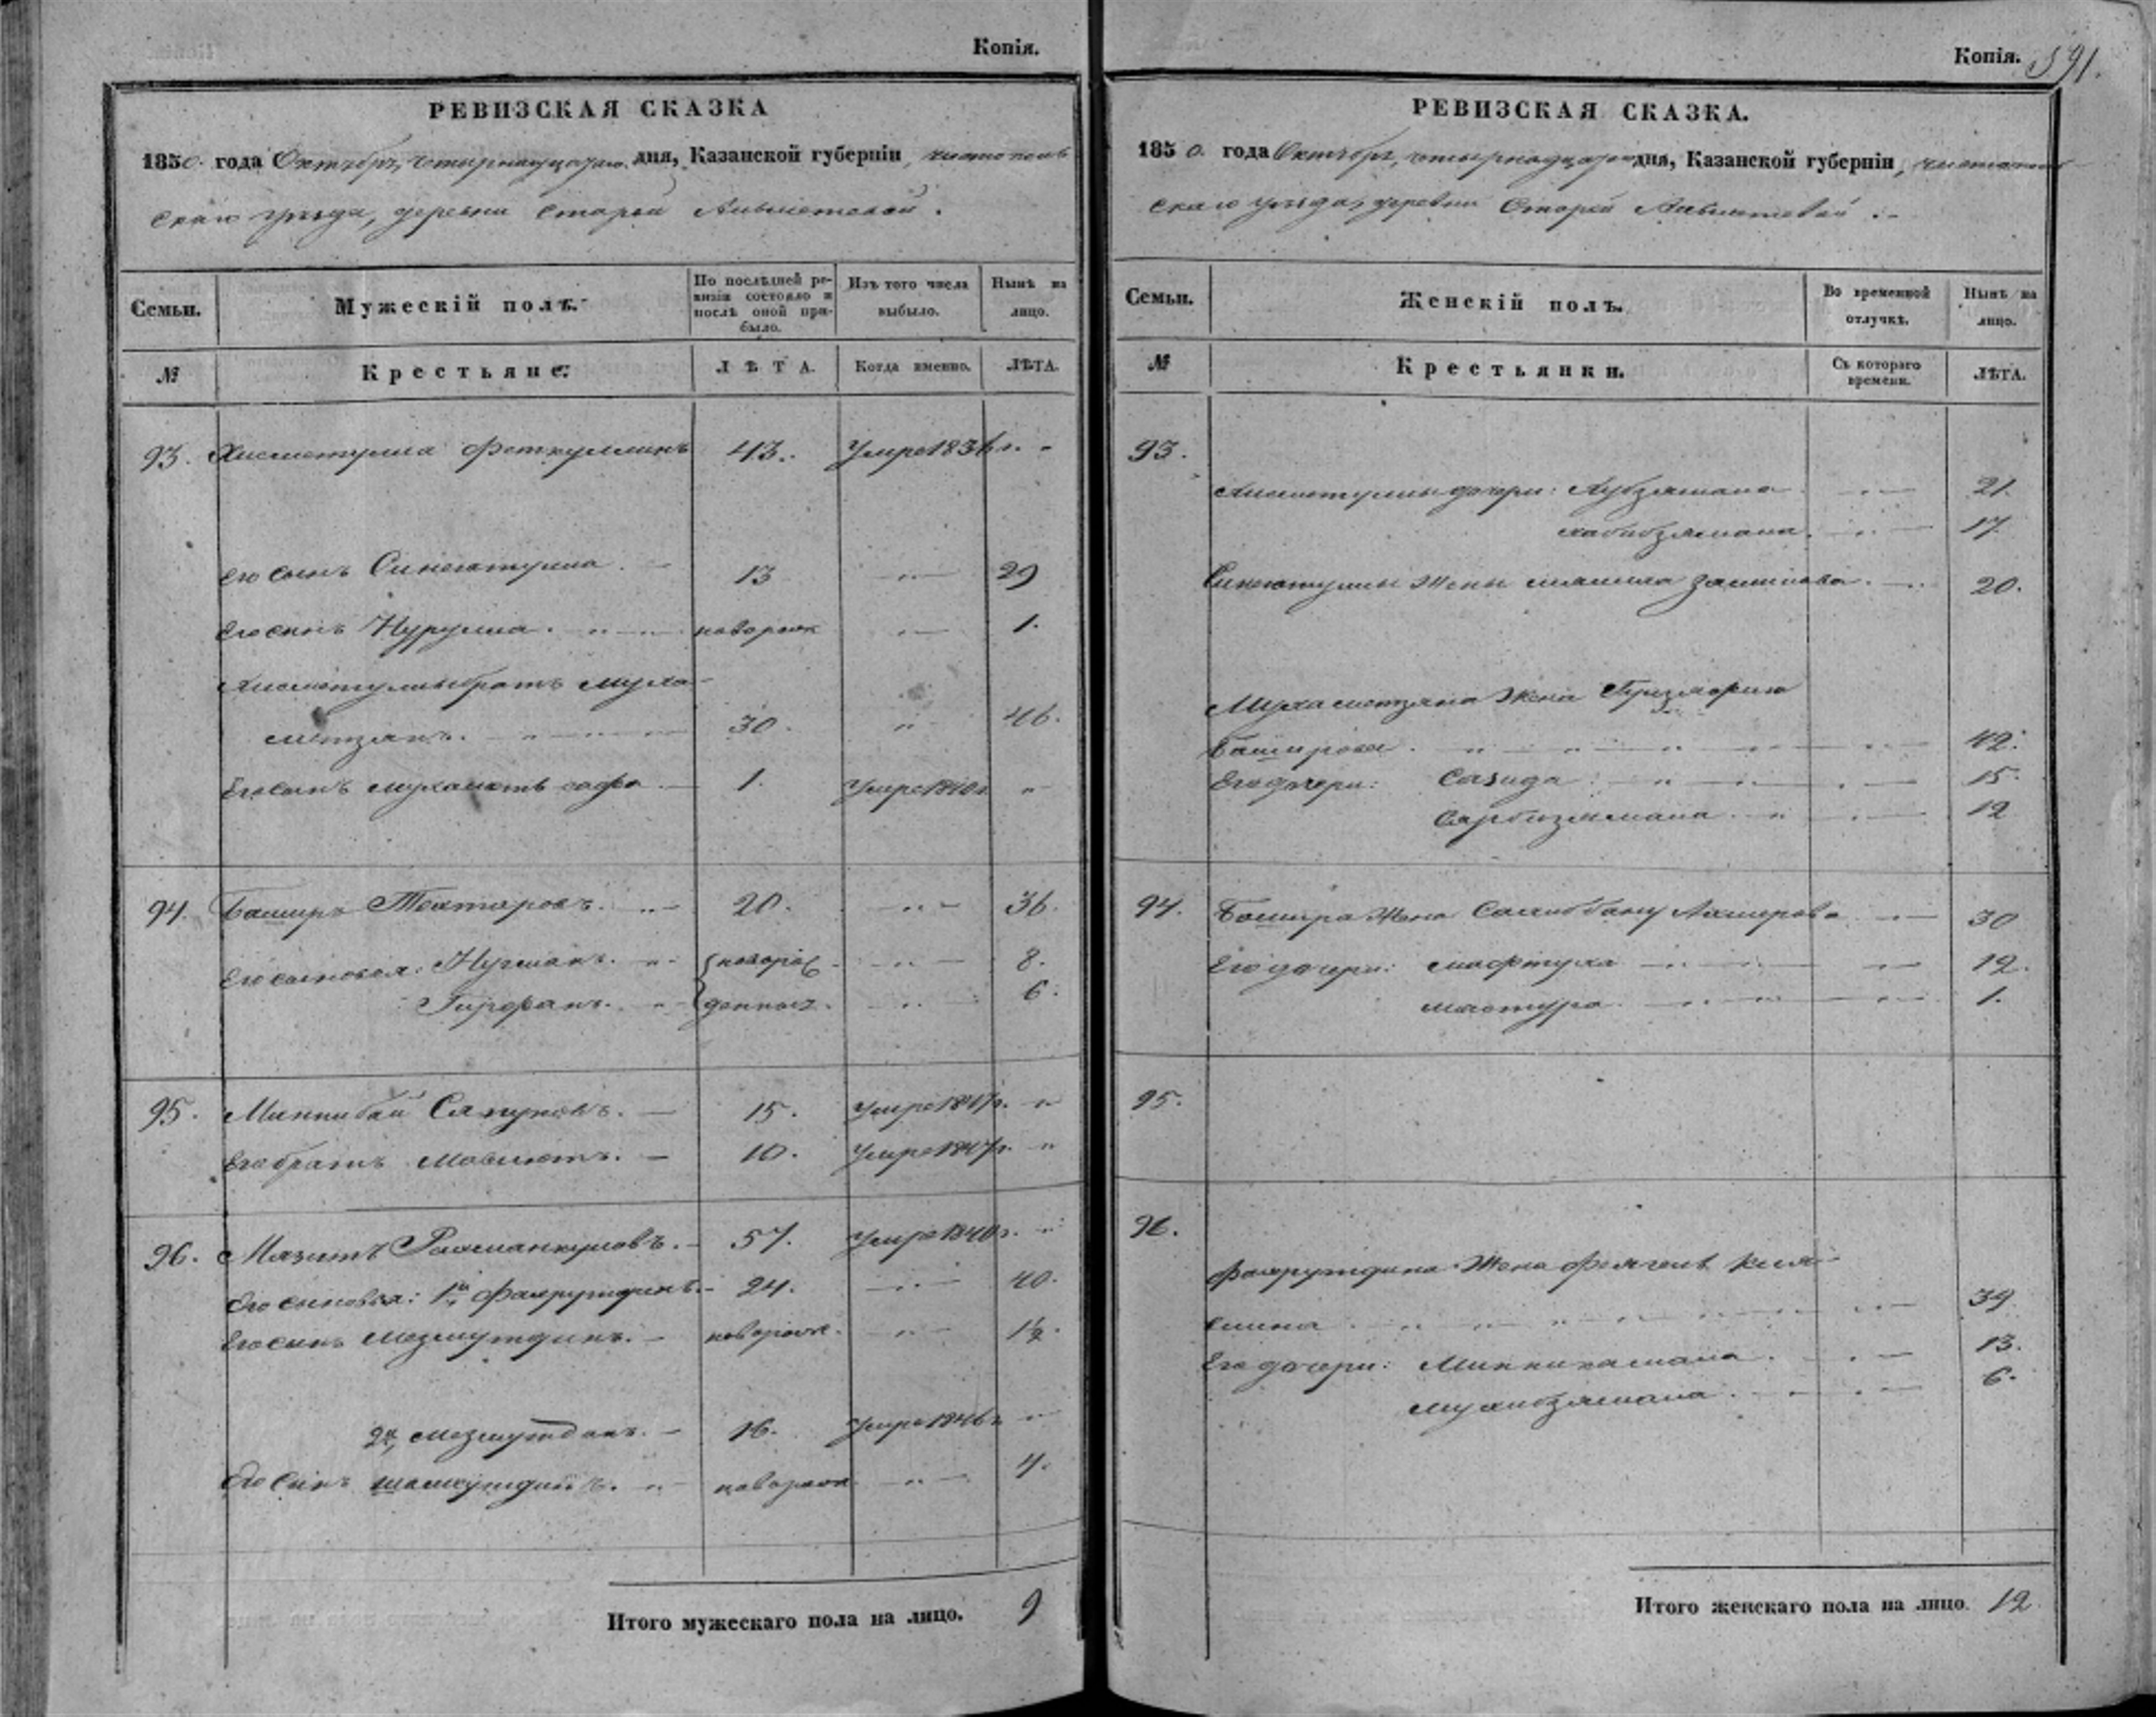 Копія.
РЕВИЗСКАЯ СКАЗКА
1850 года Октября четырнадцатаго дня, Казанской губерніи, чистополь
скаго уѣзда, деревни Старой Альметевой.
Семьи.
Мужескій полъ.
По послѣдней ре-
визіи состояло и
послѣ оной при-
было.
Изъ того числа
выбыло.
Нынѣ на
лицо.
№
Крестьяне:
ЛѢТА.
Когда именно.
ЛѢТА.
93. Хисметулла Феткуллинъ 43. Умре 1836 г. "
его сынъ Синегатулла. 13 " 29
Его сынъ Нурулла. " новорож " 1.
Хисметуллы братъ Муха-
метзянъ. " 30. " 46.
Его сынъ Мухаметь садфа 1. Умре 1840 г "
94. Баширъ Тохтаровъ. " 20. " 36.
Его сыновья: Нугманъ. " новорож " 8.
Гирфанъ. " денные. " 6.
95. Миннибай Сяпуковъ. 15. Умре 1847 г. "
Его братъ Мавлютъ. 10. Умре 1847 г. "
96. Мязитъ Рахманкуловъ. 57. Умре 1840 г. "
Его сыновья: 1й Фахрутдинъ. 24. " 40.
Его сынъ Незмутдинъ. новорож. " 1½.
2й, Незмутдинъ. 16. Умре 1846 г "
Его Сынъ Шамсутдинъ. " новорож " 4.
Итого мужескаго пола на лицо. 9
Копія. 591.
РЕВИЗСКАЯ СКАЗКА.
1850 года Октября, четырнадцатаго дня, Казанской губерніи, чистополь
скаго уѣзда, деревни Старой Альметевой.
Семьи.
Женскій полъ.
Во временной
отлучкѣ.
Нынѣ на
лицо.
№
Крестьянки.
Съ котораго
времени.
ЛѢТА.
93.
Хисметуллы дочери: Хубзямала " 21.
Хабибзямала. " 17.
Синегатуллы Жены 20.
Мухаметзяна Жена
Баширова. " 42.
Его дочери: Сагида " 15.
Сарбизямала. " 12
94. Башира Жена " 30
Его дочери: Мафтуха " 12.
Мастура. " 1.
95.
96.
Фахрутдина Жена
" 39
Его дочери: Минникамала. " 13.
Мухибзямала. " 6.
Итого женскаго пола на лицо. 12